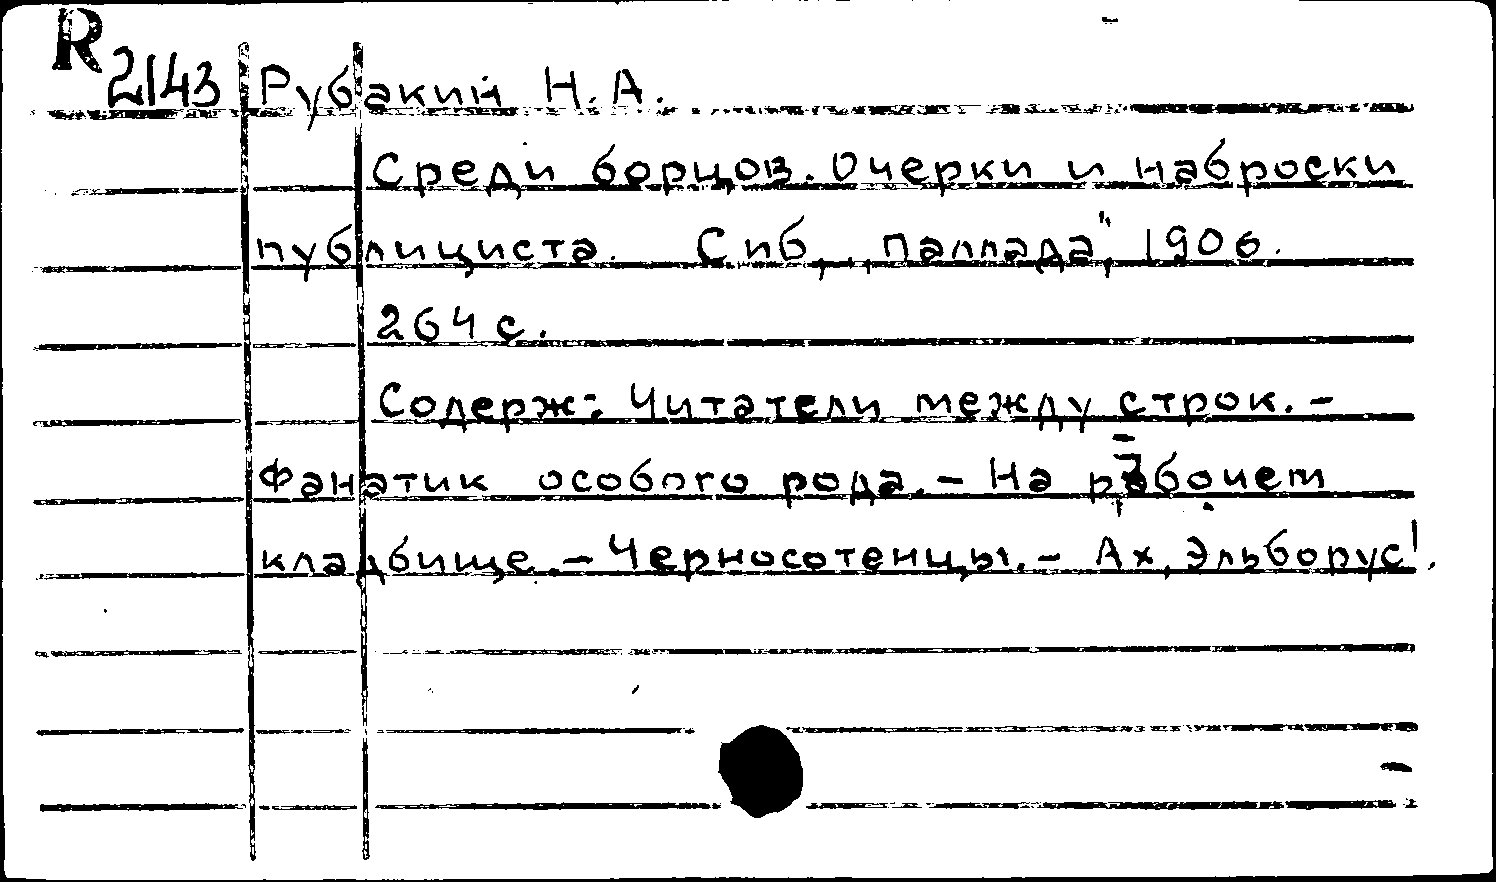 R 2143 Рубакин Н. А.
Среди борцов. Очерки и наброски
публициста. Спб, „Паллада", 1906.
264 с.
Содерж: Читатели между строк. –
Фанатик особого рода. – На рабочем
кладбище. – Черносотенцы. – Ах, Эльборус!.